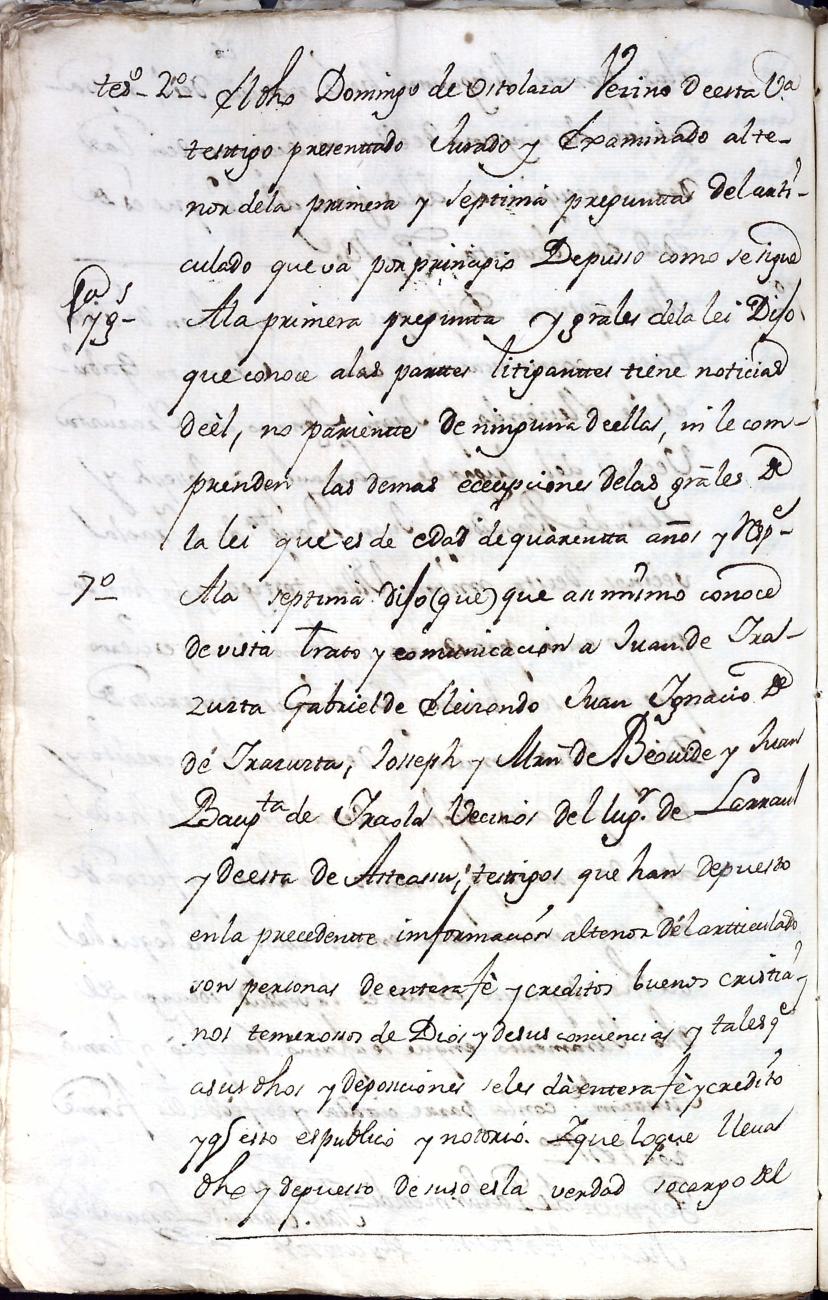 tesº 2º El dho Domingo de Ostolaza Vezino deesta Vª
testtigo presenttado Jurado y Examinado al te-
nor dela primera y septima pregunttas del arti-
culado que vá por prinzipio Depusso como se sigue
1ª y gs Ala primera pregunta y grãles dela lei Dijo
que conoce alas parttes litiganttes tiene noticias
deèl, no parientte de ninguna deellas, ni le com-
prenden las demas ecepciones delas grãles de
la lei que es de edad de quarentta años y resp.e
7º Ala septima dijo (que) que asimismo conoce
de vista trato y comunicacion a Juan de Yra-
zurta Gabriel de Eleizondo Juan Ygnacio de
dé Yrazurta, Josseph y Mrñ de Beouide y Juan
Bauptta de Yraola Vecinos del lugr. de Larraul
y deesta de Asteassu, testtigos que han depuesto
enla precedentte informacion altenor dél artticulado
son personas de entera fè y creditos buenos cristia-
nos temerosos de Dios y desus conciencias y tales qe
asus dhos y deposiciones seles dà entera fè y credito
y qe esto es publico y notorio. Y que loque lleua
dho y depuesto de suso es la verdad socargo del